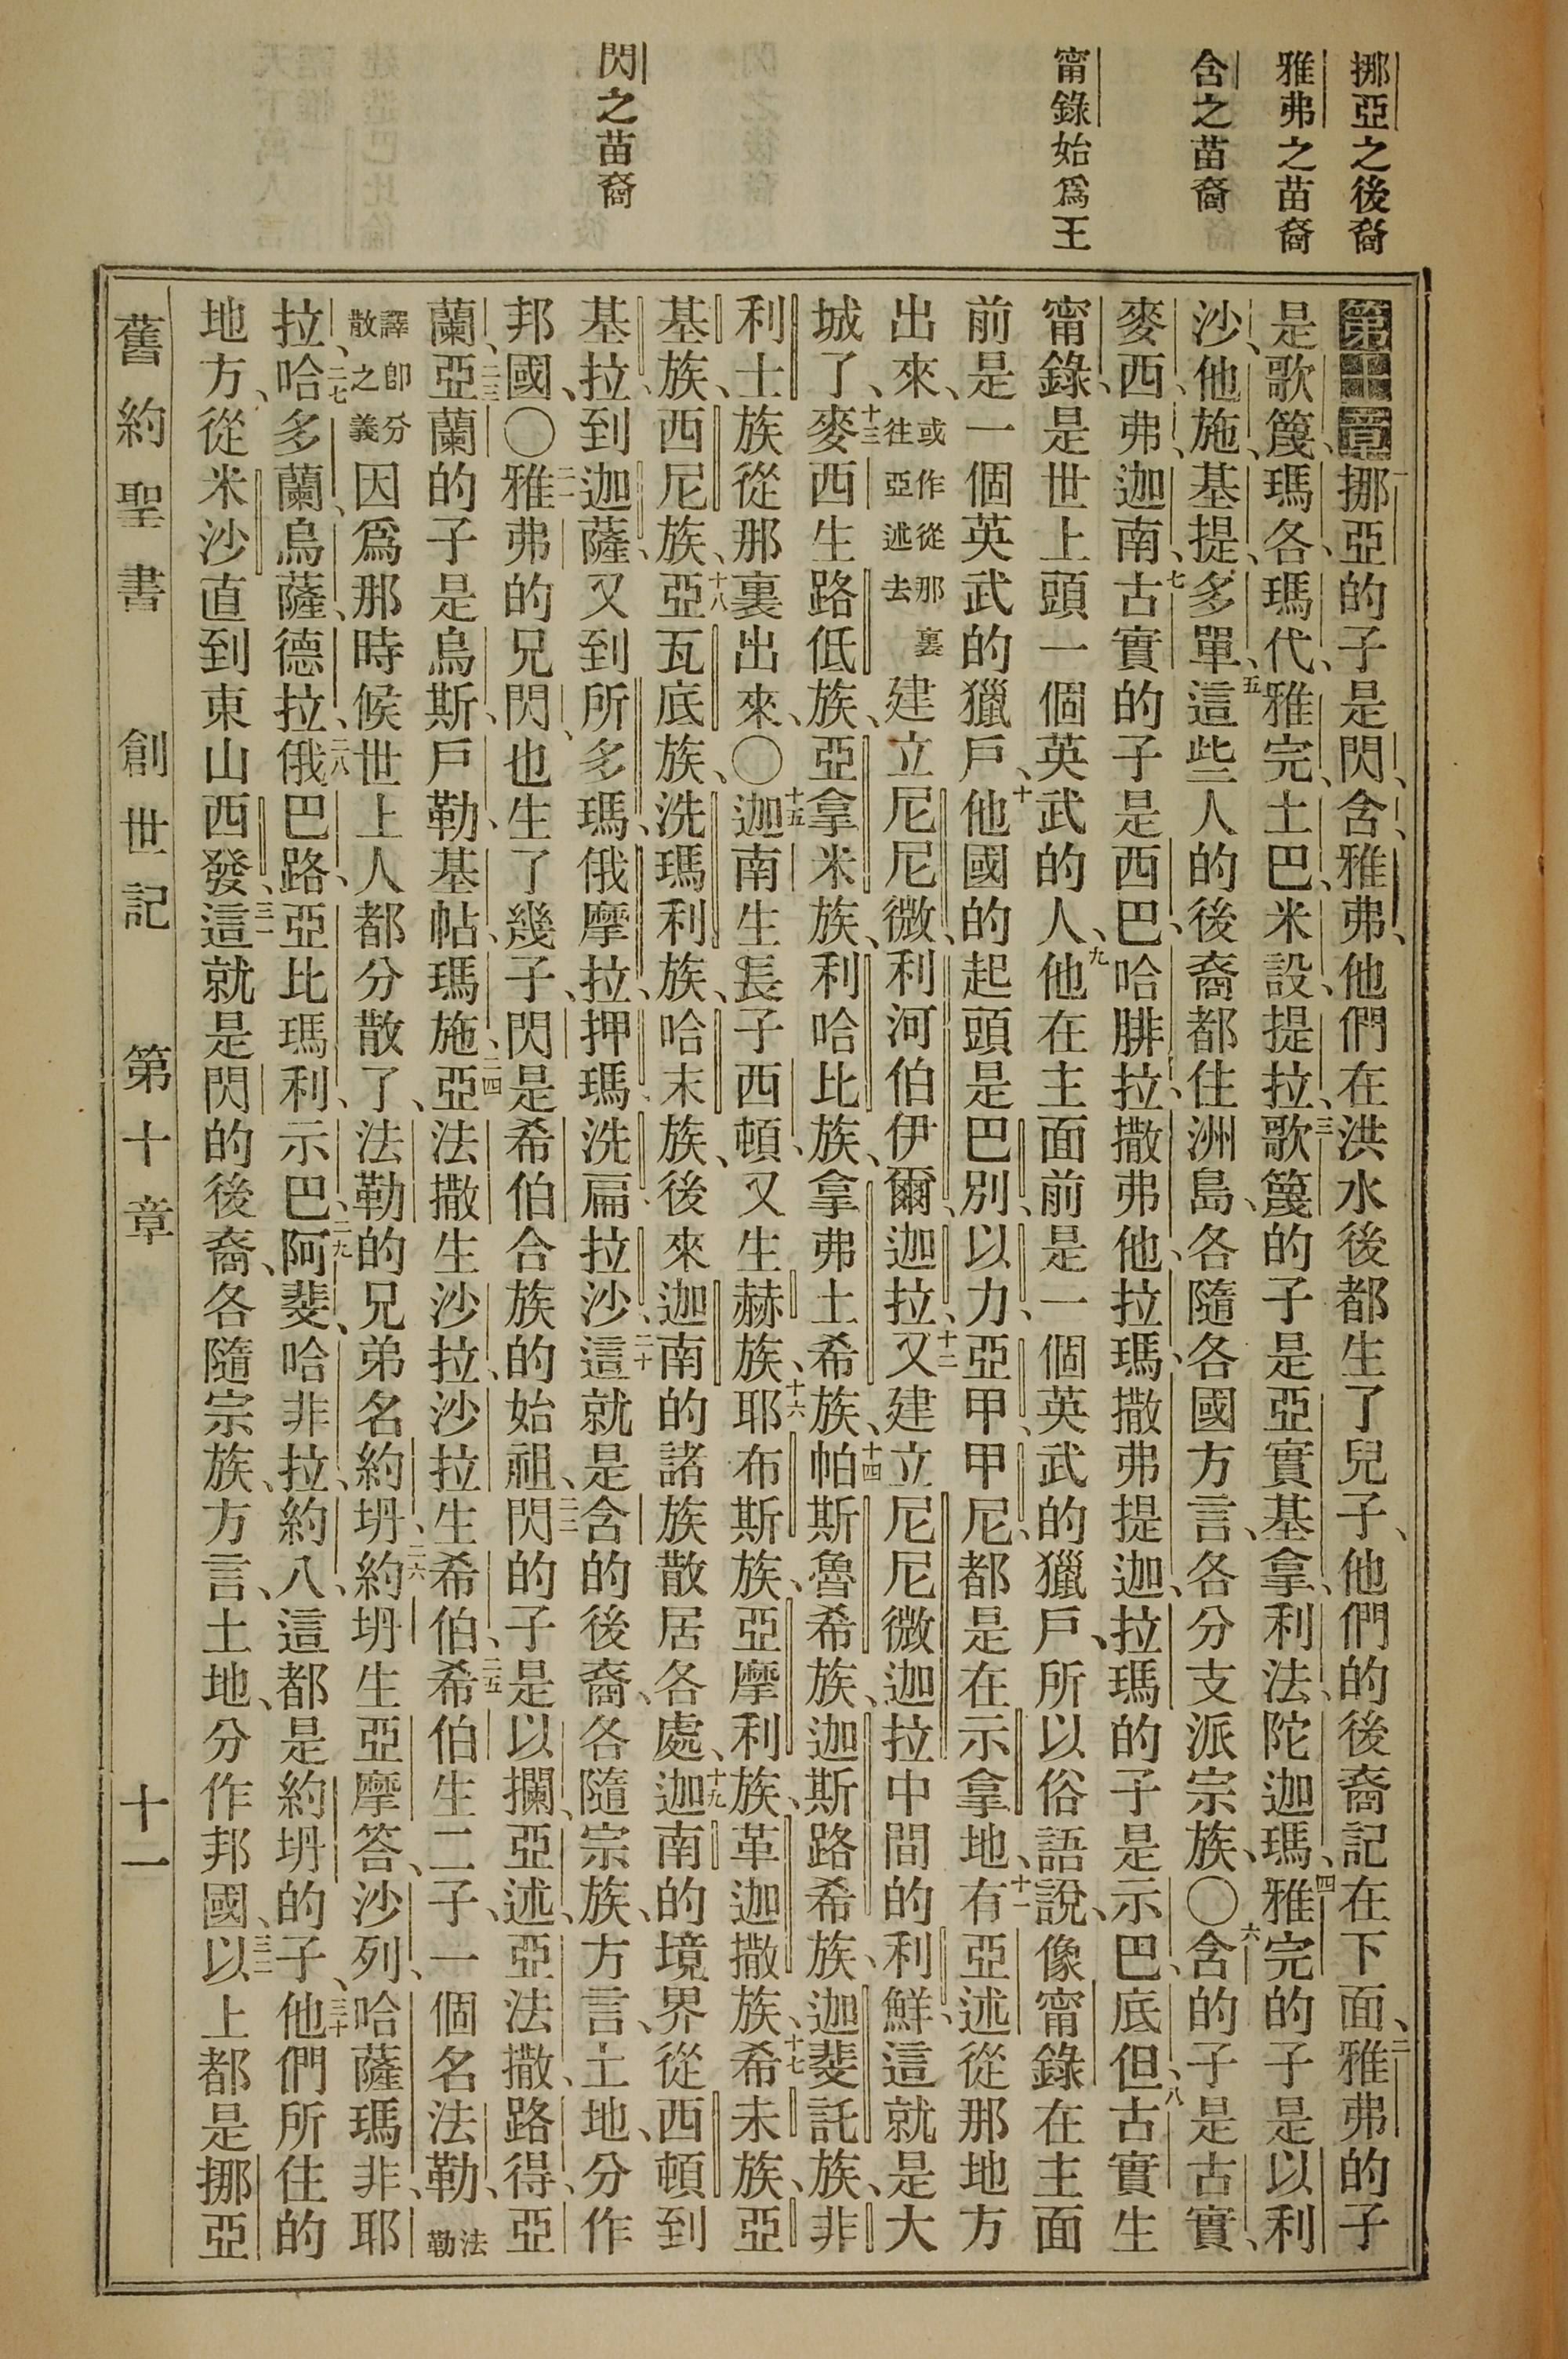 挪亞之後裔
雅弗之苗裔
含之苗裔
甯錄始爲王
閃之苗裔
第十章一挪亞的子是閃、含、雅弗、他們在洪水後都生了兒子、他們的後裔記在下面、二雅弗的子
是歌篾、瑪各、瑪代、雅完、土巴、米設、提拉、三歌篾的子是亞實基拿、利法、陀迦瑪、四雅完的子是以利
沙、他施、基提、多單、五這些人的後裔都住洲島、各隨各國方言、各分支派宗族、〇六含的子是古實、
麥西、弗、迦南、七古實的子是西巴、哈腓拉、撒弗他、拉瑪、撒弗提迦、拉瑪的子是示巴、底但、八古實生
甯錄、是世上頭一個英武的人、九他在主面前是一個英武的獵戶、所以俗語說、像甯錄在主面
前是一個英武的獵戶、十他國的起頭是巴別、以力、亞甲、甲尼、都是在示拿地、十一有亞述從那地方
出來、或作從那裏往亞述去建立尼尼微、利河伯伊爾、迦拉、十二又建立尼尼微迦拉中間的利鮮、這就是大
城了、十三麥西生路低族、亞拿米族、利哈比族、拿弗土希族、十四帕斯魯希族、迦斯路希族、迦斐託族、非
利士族從那裏出來、〇十五迦南生長子西頓、又生赫族、十六耶布斯族、亞摩利族、革迦撒族、十七希未族、亞
基族、西尼族、十八亞瓦底族、洗瑪利族、哈末族、後來迦南的諸族散居各處、十九迦南的境界從西頓到
基拉、到迦薩、又到所多瑪、俄摩拉、押瑪、洗扁、拉沙、二十這就是含的後裔、各隨宗族、方言、土地、分作
邦國、〇二一雅弗的兄閃、也生了幾子、閃是希伯合族的始祖、二二閃的子是以攔、亞述、亞法撒、路得、亞
蘭、二三亞蘭的子是烏斯、戶勒、基帖、瑪施、二四亞法撒生沙拉、沙拉生希伯、二五希伯生二子、一個名法勒、法勒
譯卽分散之義因爲那時候世上人都分散了、法勒的兄弟名約坍、二六約坍生亞摩答、沙列、哈薩瑪非、耶
拉、二七哈多蘭、烏薩、德拉、二八俄巴路、亞比瑪利、示巴、二九阿斐、哈非拉、約八、這都是約坍的子、三十他們所住的
地方、從米沙直到東山西發、三一這就是閃的後裔、各隨宗族、方言、土地、分作邦國、三二以上都是挪亞
舊約聖書 創世記 第十章 十一